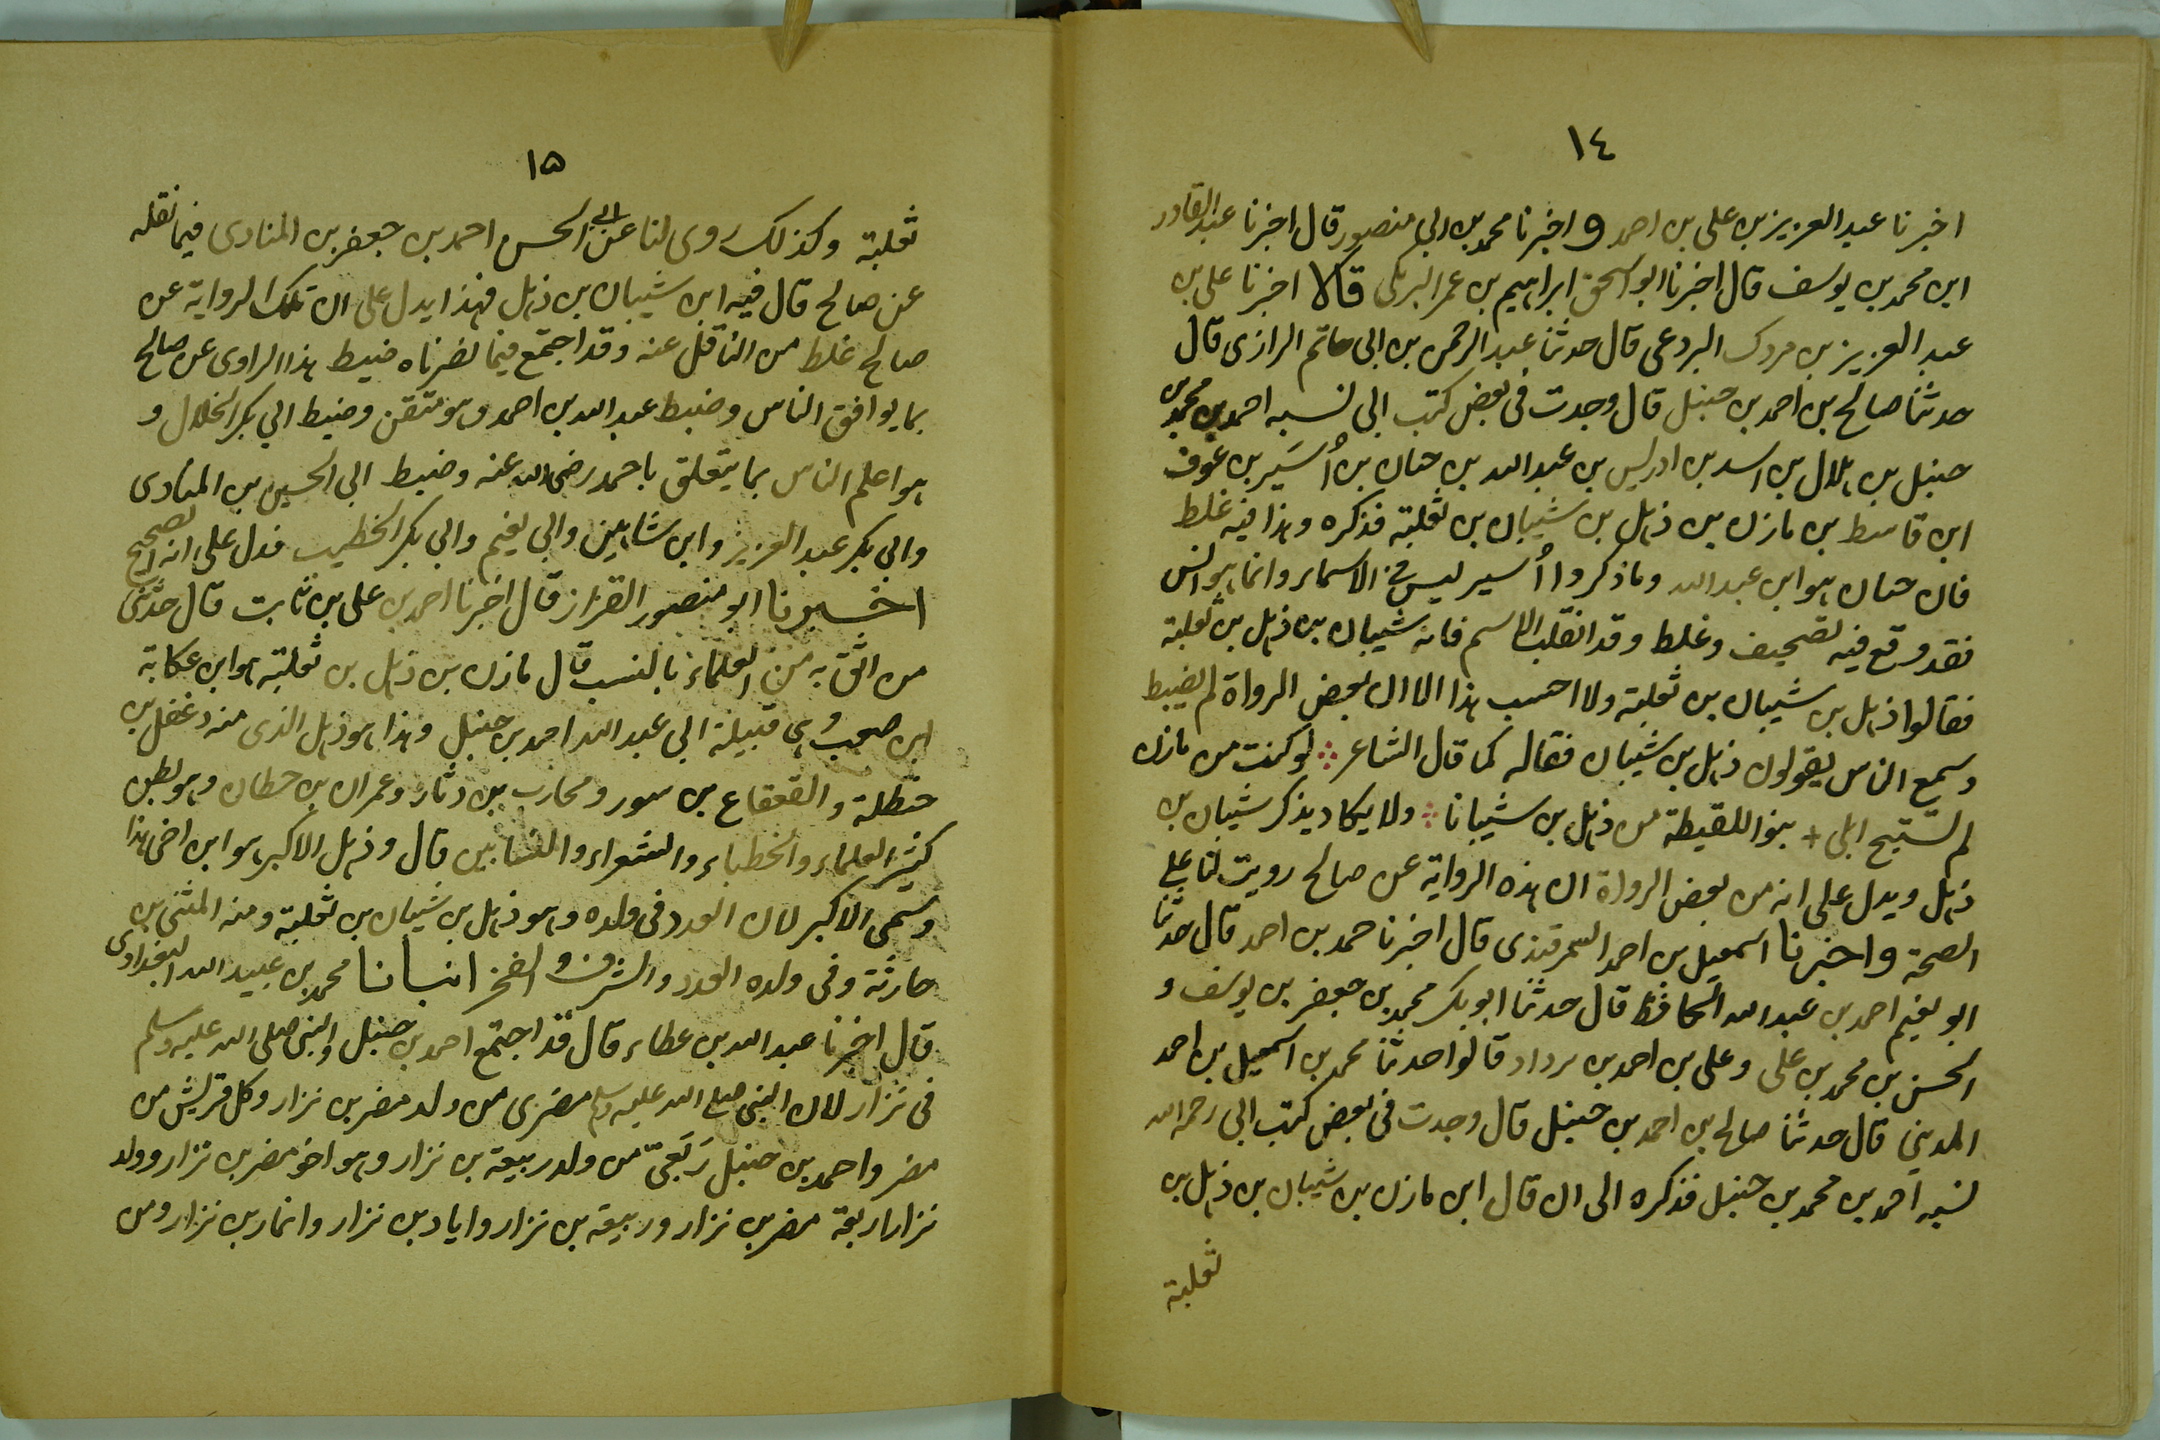 ١٤
اخبرنا عبد العزيز بن على بن احمد و اخبرنا محمد بن ابى منصور قال اخبرنا عبد القادر
ابن محمد بن يوسف قال اخبرنا ابو اسحق ابراهيم بن عمر البرمكى قالا اخبرنا على بن
عبد العزيز بن مردك البردعى قال حدثنا عبد الرحمن بن ابى حاتم الرازى قال
حدثنا صالح بن احمد بن حنبل قال وجدت فى بعض كتب ابى نسبه احمد بن محمد بن
حنبل بن هلال بن اسد بن ادريس بن عبد الله بن حنان بن اُسَير بن عوف
ابن قاسط بن مازن بن ذهل بن شيبان بن ثعلبة فذكره وهذا فيه غلط
فان حنان هو ابن عبد الله وما ذكروا اُسير ليس فى الاسماء وانما هو انس
فقد وقع فيه تصحيف وغلط وقد انقلب الاسم فانه شيبان بن ذهل بن ثعلبة
فقالوا ذهل بن شيبان بن ثعلبة ولا احسب هذا الا ان بعض الرواة لم يضبط
وسمع الناس يقولون ذهل بن شيبان فقاله كما قال الشاعر لو كنت من مازن
لم تستبح ابلى + بنو اللقيطة من ذهل بن شيبانا ولا يكاد يذكر شيبان بن
ذهل ويدل على انه من بعض الرواة ان هذه الرواية عن صالح رويت لنا على
الصحة واخبرنا اسمعيل بن احمد السمرقندى قال اخبرنا حمد بن احمد قال حدثنا
ابو نعيم احمد بن عبد الله الحافظ قال حدثنا ابو بكر محمد بن جعفر بن يوسف و
الحسن بن محمد بن على وعلى بن احمد بن يرداد قالوا حدثنا محمد بن اسمعيل بن احمد
المدينى قال حدثنا صالح بن احمد بن حنبل قال وجدت فى بعض كتب ابى رحمه الله
نسبه احمد بن محمد بن حنبل فذكره الى ان قال ابن مازن بن شيبان بن ذهل بن
ثعلبة
١٥
ثعلبة وكذلك روى لنا عن ابى الحسن احمد بن جعفر بن المنادى فيما نقله
عن صالح قال فيه ابن شيبان بن ذهل فهذا يدل على ان تلك الرواية عن
صالح غلط من الناقل عنه وقد اجتمع فيما نصرناه ضبط هذا الراوى عن صالح
بما يوافق الناس وضبط عبد الله بن احمد وهو متقن وضبط ابى بكر الخلال و
هو اعلم الناس بما يتعلق باحمد رضى الله عنه وضبط ابى الحسين بن المنادى
وابى بكر عبد العزيز وابن شاهين وابى نعيم وابى بكر الخطيب فدل على انه الصحيح
اخبرنا ابو منصور القزاز قال اخبرنا احمد بن على بن ثابت قال حدثنى
من اثق به من العلماء بالنسب قال مازن بن ذهل بن ثعلبة هو ابن عكابة
ابن صعب وهى قبيلة ابى عبد الله احمد بن حنبل وهذا هو ذهل الذى منه دغفل بن
حنظلة والقعقاع بن سور ومحارب بن دثار وعمران بن حطان وهو بطن
كثير العلماء والخطباء والشعراء والنسابين قال وذهل الاكبر هو ابن اخى هذا
وسمى الاكبر لان العدد فى ولده وهو ذهل بن شيبان بن ثعلبة ومنه المثنى بن
حارثة وفى ولده العدد والشرف والفخر انبانا محمد بن عبيد الله البغدادى
قال اخبرنا عبد الله بن عطاء قال قد اجتمع احمد بن حنبل والنبى صلى الله عليه وسلم
فى نزار لان النبى صلى الله عليه وسلم مضرى من ولد مضر بن نزار وكل قريش من
مضر واحمد بن حنبل رَبَعىّ من ولد ربيعة بن نزار وهو اخو مضر بن نزار وولد
نزار اربعة مضر بن نزار وربيعة بن نزار واياد بن نزار وانمار بن نزار ومن